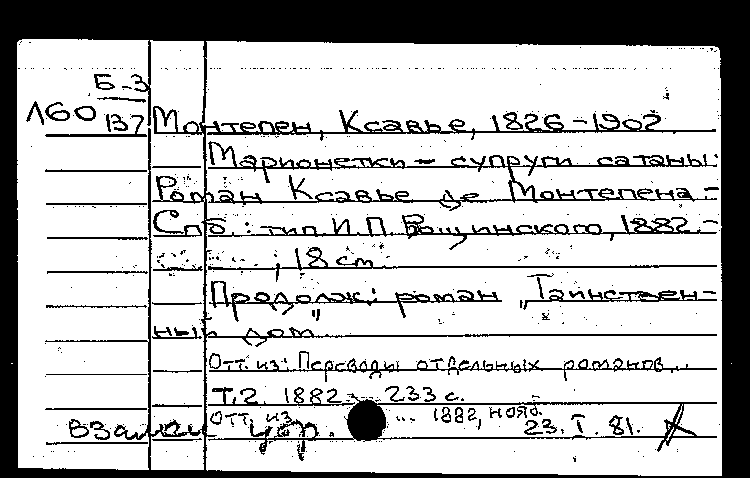 Б-3
160 137 Монтепен, Ксавье, 1826-1902
Марионетки - супруги сатаны:
Роман Ксавье де Монтепена.-
Спб.: тип. И.П. Вощинского, 1882.-
; 18 см.
Продолж.: роман "Таинствен-
ный дом"
Отт. из: Переводы отдельных романов...
Т.2. 1882 233 с.
Отт. из ... 1882, нояб.
взамен 23.I.81.